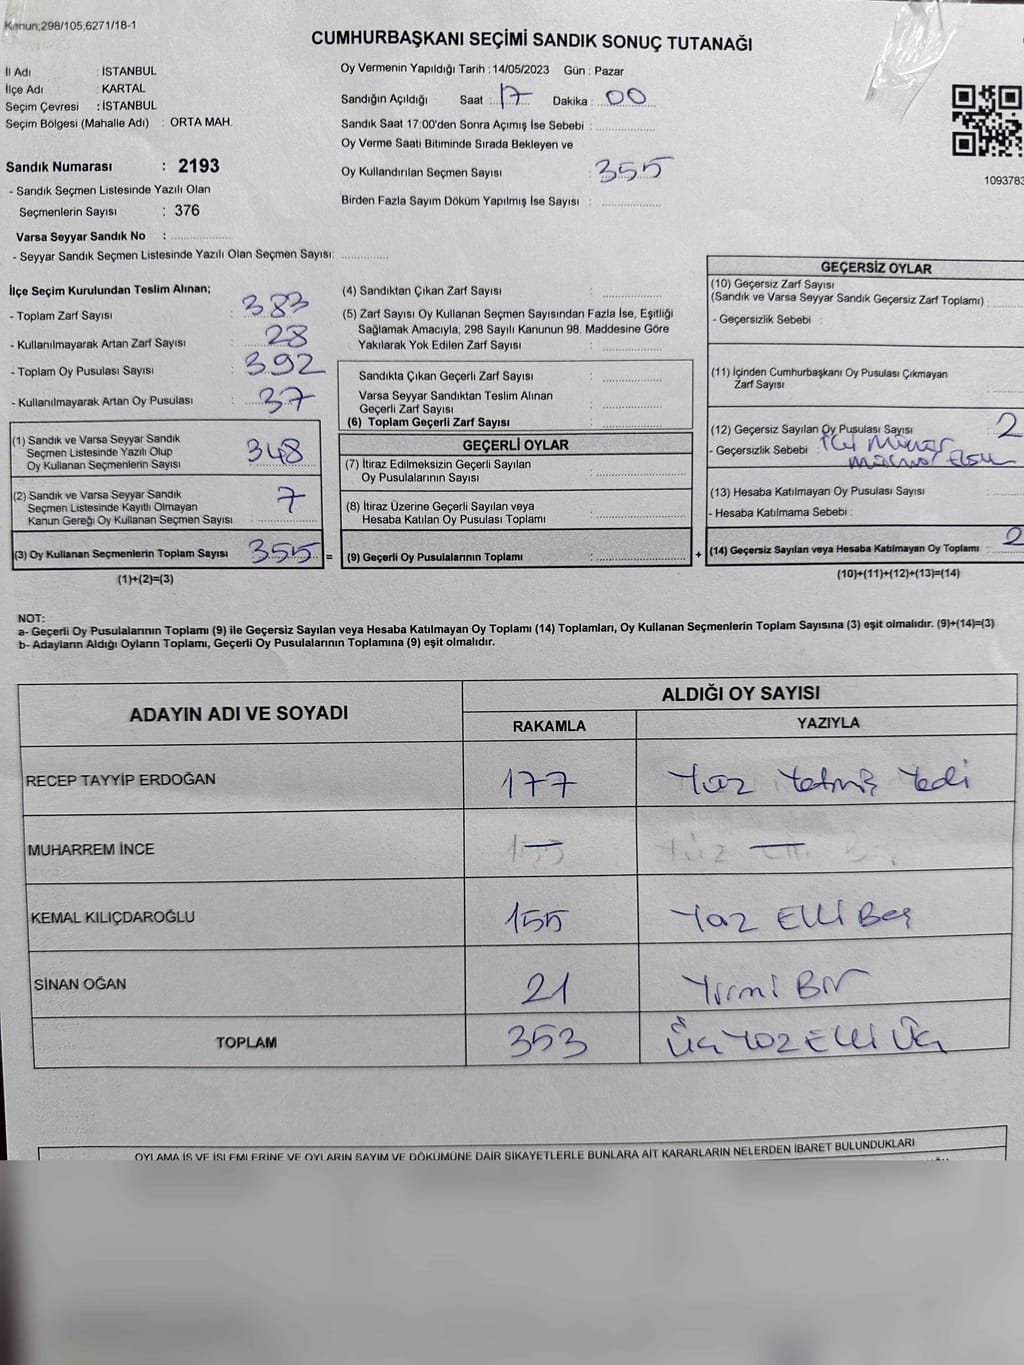 Kanun;298/105;6271/18-1
CUMHURBAŞKANI SEÇİMİ SANDIK SONUÇ TUTANAĞI
İl Adı : İSTANBUL
İlçe Adı : KARTAL
Seçim Çevresi : İSTANBUL
Seçim Bölgesi (Mahalle Adı) : ORTA MAH.
Sandık Numarası : 2193
- Sandık Seçmen Listesinde Yazılı Olan
Seçmenlerin Sayısı : 376
Varsa Seyyar Sandık No :
- Seyyar Sandık Seçmen Listesinde Yazılı Olan Seçmen Sayısı:
Oy Vermenin Yapıldığı Tarih : 14/05/2023 Gün : Pazar
Sandığın Açıldığı Saat : 17 Dakika : 00
Sandık Saat 17:00'den Sonra Açımış İse Sebebi :
Oy Verme Saati Bitiminde Sırada Bekleyen ve
Oy Kullandırılan Seçmen Sayısı : 355
Birden Fazla Sayım Döküm Yapılmış İse Sayısı :
1093783
İlçe Seçim Kurulundan Teslim Alınan;
- Toplam Zarf Sayısı : 383
- Kullanılmayarak Artan Zarf Sayısı : 28
- Toplam Oy Pusulası Sayısı : 392
- Kullanılmayarak Artan Oy Pusulası : 37
(1) Sandık ve Varsa Seyyar Sandık
Seçmen Listesinde Yazılı Olup
Oy Kullanan Seçmenlerin Sayısı 348
(2) Sandık ve Varsa Seyyar Sandık
Seçmen Listesinde Kayıtlı Olmayan
Kanun Gereği Oy Kullanan Seçmen Sayısı : 7
(3) Oy Kullanan Seçmenlerin Toplam Sayısı 355 =
(1)+(2)=(3)
(4) Sandıktan Çıkan Zarf Sayısı :
(5) Zarf Sayısı Oy Kullanan Seçmen Sayısından Fazla İse, Eşitliği
Sağlamak Amacıyla, 298 Sayılı Kanunun 98. Maddesine Göre
Yakılarak Yok Edilen Zarf Sayısı :
Sandıkta Çıkan Geçerli Zarf Sayısı :
Varsa Seyyar Sandıktan Teslim Alınan
Geçerli Zarf Sayısı :
(6) Toplam Geçerli Zarf Sayısı :
GEÇERLİ OYLAR
(7) İtiraz Edilmeksizin Geçerli Sayılan
Oy Pusulalarının Sayısı :
(8) İtiraz Üzerine Geçerli Sayılan veya
Hesaba Katılan Oy Pusulası Toplamı :
(9) Geçerli Oy Pusulalarının Toplamı : +
GEÇERSİZ OYLAR
(10) Geçersiz Zarf Sayısı
(Sandık ve Varsa Seyyar Sandık Geçersiz Zarf Toplamı) :
- Geçersizlik Sebebi :
(11) İçinden Cumhurbaşkanı Oy Pusulası Çıkmayan
Zarf Sayısı
(12) Geçersiz Sayılan Oy Pusulası Sayısı : 2
- Geçersizlik Sebebi :
(13) Hesaba Katılmayan Oy Pusulası Sayısı
- Hesaba Katılmama Sebebi :
(14) Geçersiz Sayılan veya Hesaba Katılmayan Oy Toplamı : 2
(10)+(11)+(12)+(13)=(14)
NOT:
a- Geçerli Oy Pusulalarının Toplamı (9) ile Geçersiz Sayılan veya Hesaba Katılmayan Oy Toplamı (14) Toplamları, Oy Kullanan Seçmenlerin Toplam Sayısına (3) eşit olmalıdır. (9)+(14)=(3)
b- Adayların Aldığı Oyların Toplamı, Geçerli Oy Pusulalarının Toplamına (9) eşit olmalıdır.
ADAYIN ADI VE SOYADI
ALDIĞI OY SAYISI
RAKAMLA YAZIYLA
RECEP TAYYİP ERDOĞAN 177 Yüz Yetmiş Yedi
MUHARREM İNCE —  —
KEMAL KILIÇDAROĞLU 155 Yüz Elli Beş
SİNAN OĞAN 21 Yirmi Bir
TOPLAM 353 Üç Yüz Elli Üç
OYLAMA İŞ VE İŞLEMLERİNE VE OYLARIN SAYIM VE DÖKÜMÜNE DAİR ŞİKAYETLERLE BUNLARA AİT KARARLARIN NELERDEN İBARET BULUNDUKLARI